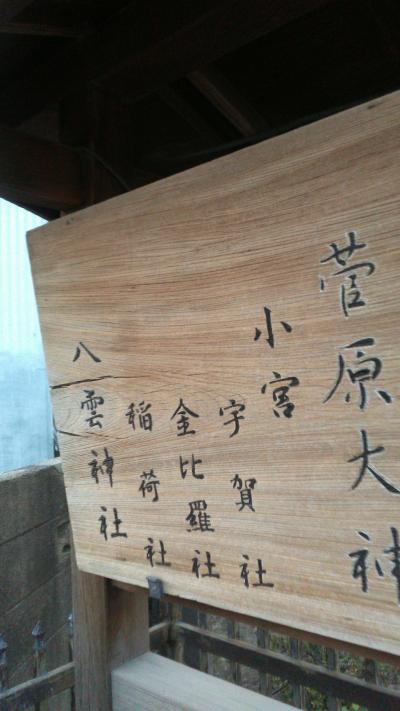 菅原大神
小宮
宇賀社
金比羅社
稲荷社
八雲神社